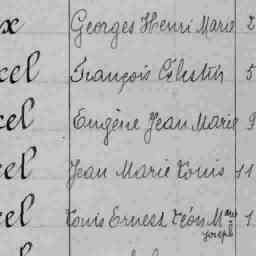 x Georges Henri Marie 2
cel François Célestin 5
cel Eugène Jean Marie 9
cel Jean Marie Louis 11
cel Louis Ernest Léon Mie Joseph 1